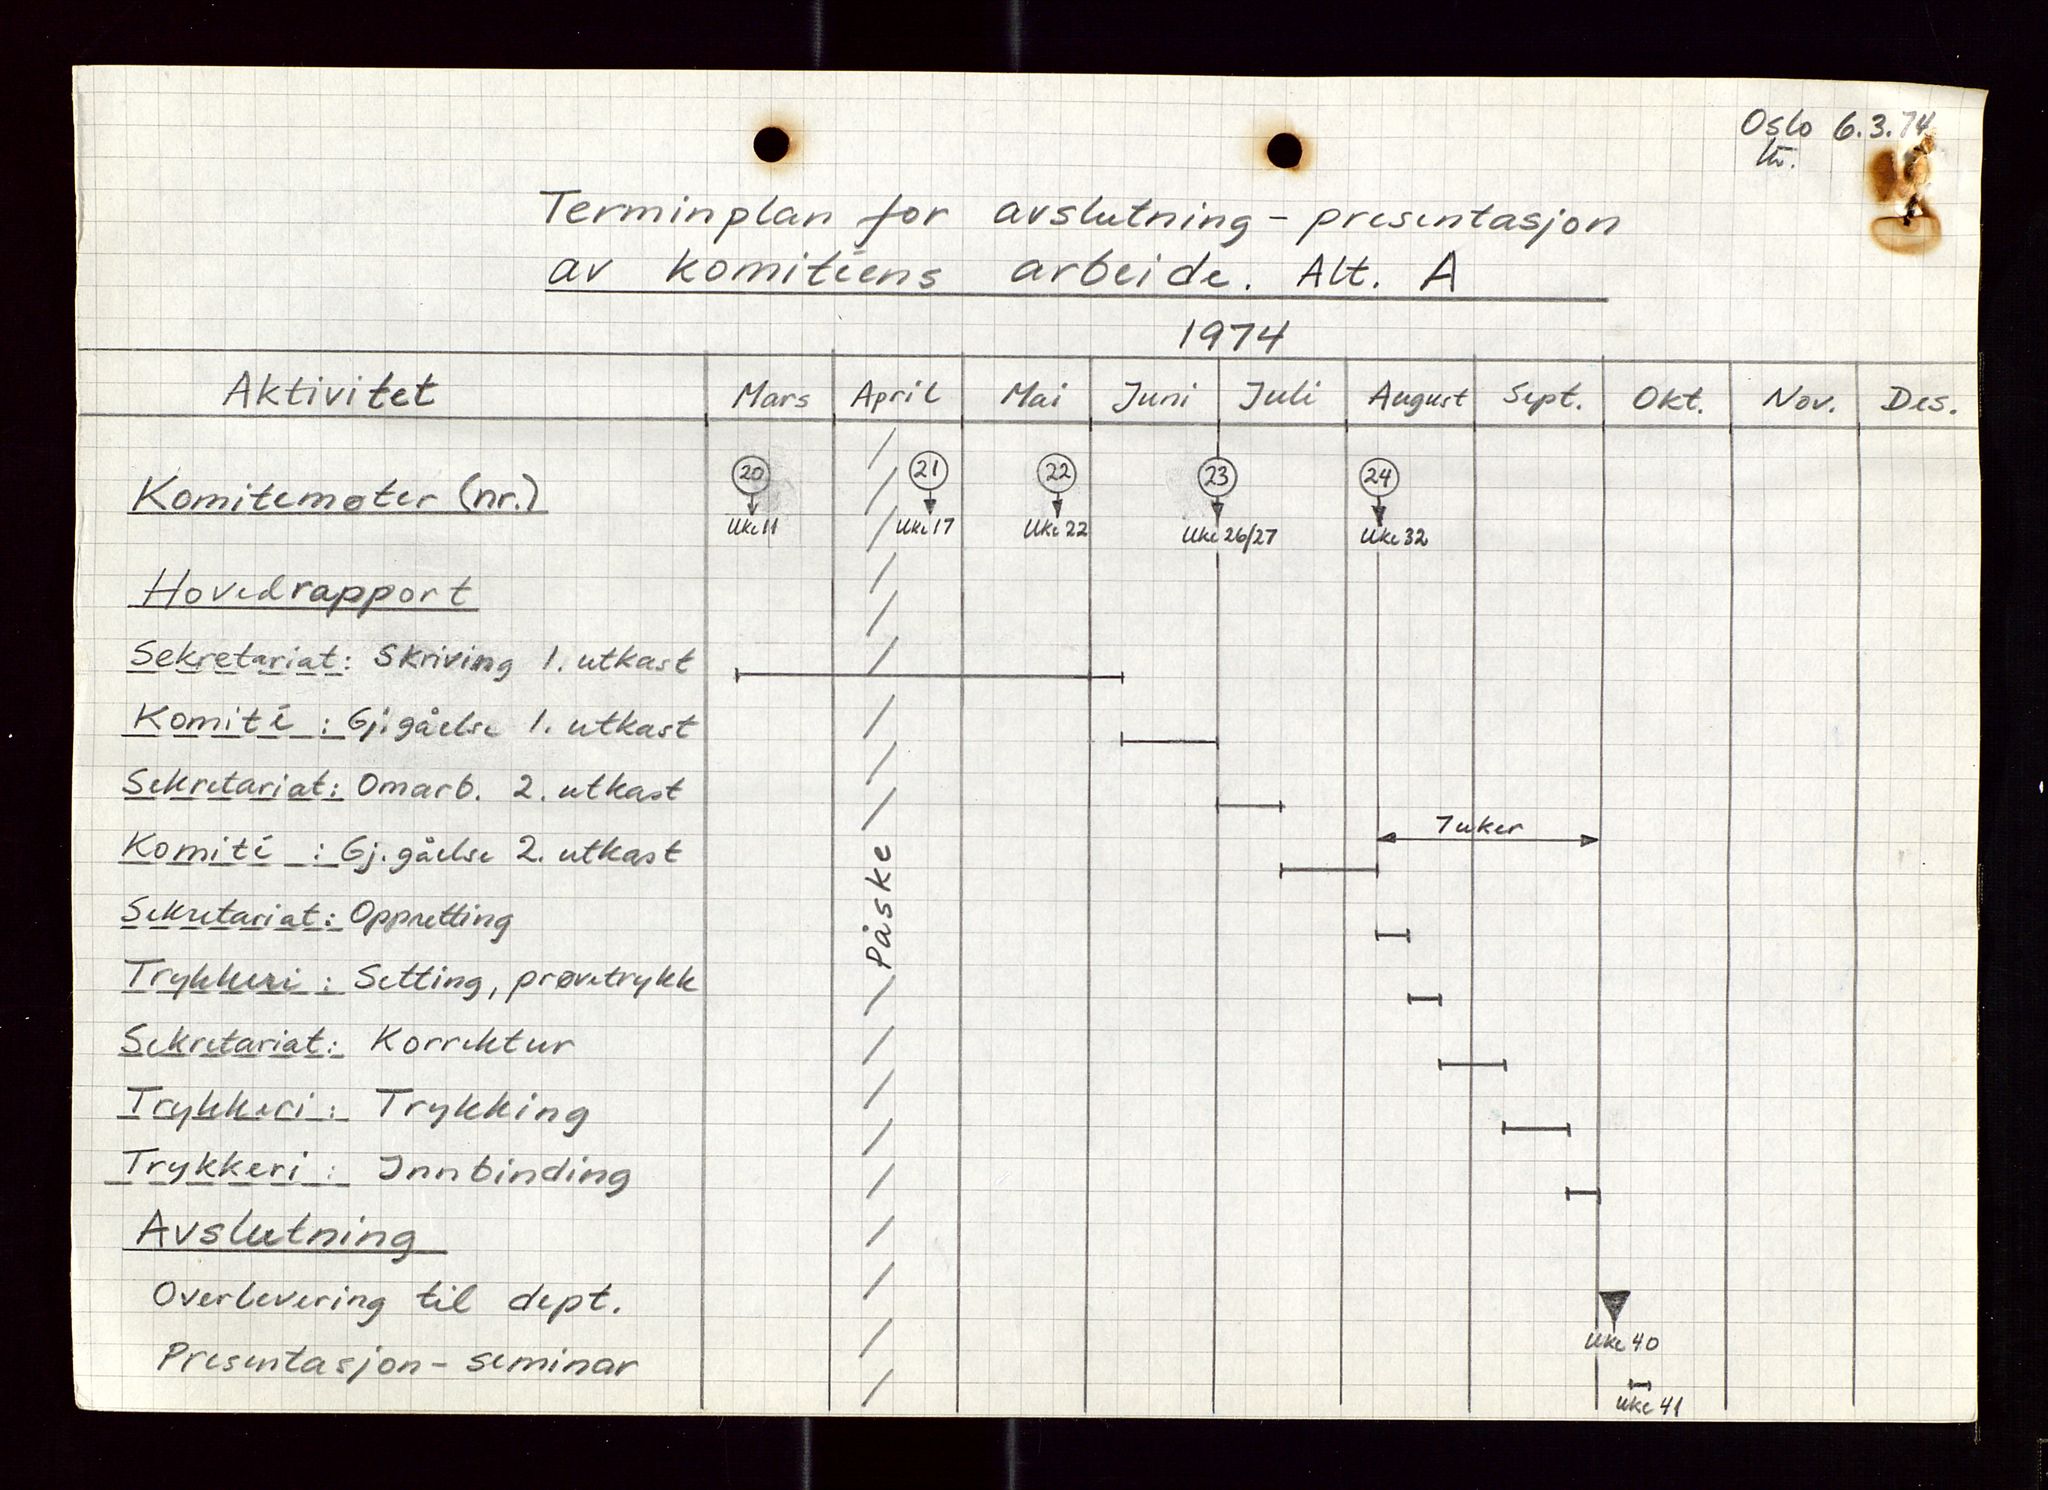 Oslo 6.3.74
Terminplan for avslutning - presentasjon
av komitéens arbeide. Alt. A
1974
Aktivitet Mars April Mai Juni Juli August Sept. Okt. Nov. Des.
Komitemøter (nr.) 20 21 22 23 24
Uke 11 Uke 17 Uke 22 Uke 26/27 Uke 32
Hovedrapport
Sekretariat: Skriving 1. utkast
Komité : Gj.gåelse 1. utkast
Sekretariat: Omarb. 2. utkast
7 uker
Komité : Gj.gåelse 2. utkast
Påske
Sekretariat: Oppretting
Trykkeri : Setting, prøvetrykk
Sekretariat: Korrektur
Trykkeri : Trykking
Trykkeri : Innbinding
Avslutning
Overlevering til dept.
Uke 40
Presentasjon - seminar
Uke 41